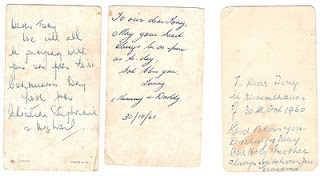 Dear Tony
We all all
be praying with
you on your first
Communion Day
Love from
& Michael
To our dear Tony,
May your heart
always be as pure
as to-day,
God bless you
Loving
Mummy & Daddy.
30/10/60
To Dear Tony
in remembrance
of 30th Oct 1960
God Bless you
&
Our Holy Mother
always watch over you
Grandma